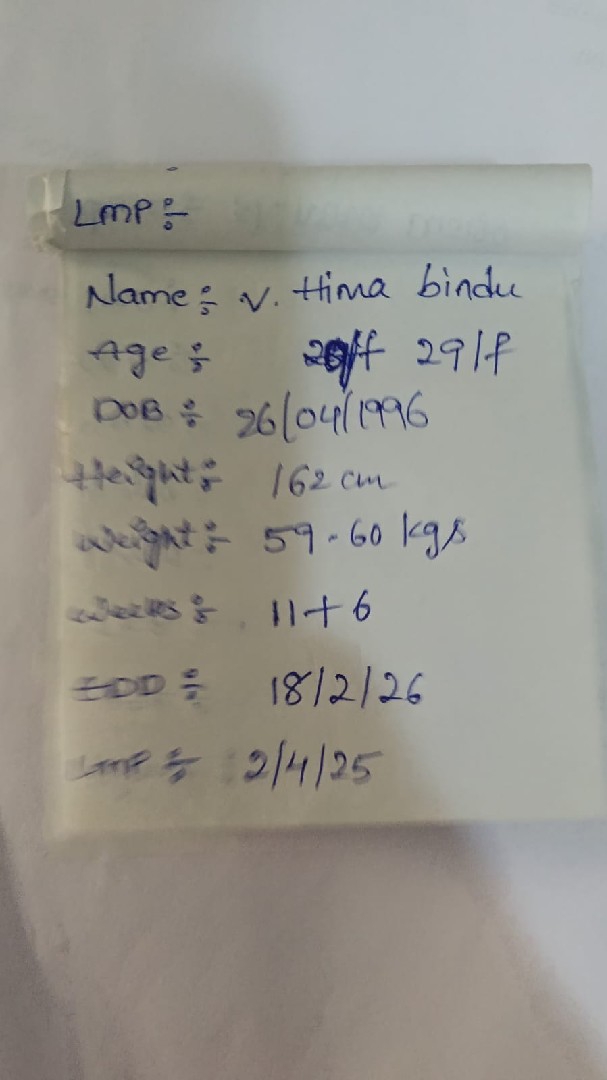 LMP÷
Name÷ V. Hima bindu
Age÷ 29/f
DOB÷ 26/04/1996
Height÷ 162 cm
Weight÷ 59-60 kgs
Weeks÷ 11+6
EDD÷ 18/2/26
LMP÷ 2/4/25